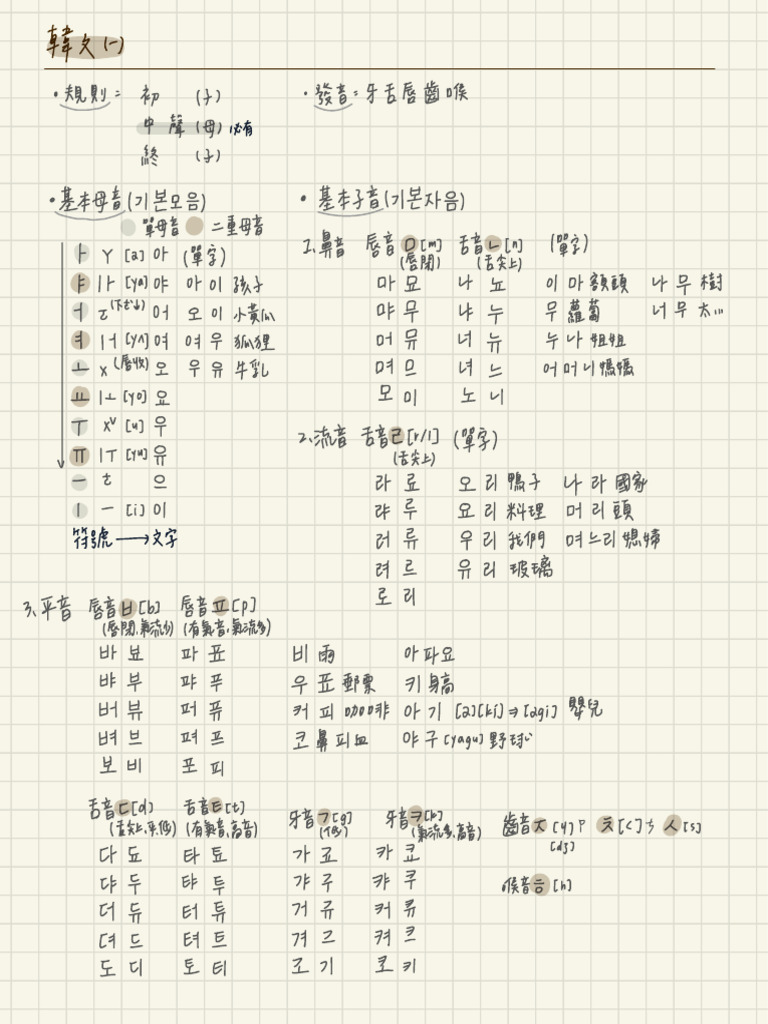 韓文(一)
•規則= 初 (子)
中聲(母)必有
終 (子)
•發音=牙舌唇齒喉
•基本母音(기본모음)
單母音 二重母音
ㅏ ㄚ [a] 아 (單字)
ㅑ ㅣㅏ [ya] 야 아이 孩子
ㅓ ㄛ 어 오이 小黃瓜
ㅕ ㅣㅓ [yʌ] 여 여우 狐狸
ㅗ ㄨ (唇收) 오 우유 牛乳
ㅛ ㅣㅗ [yo] 요
ㅜ ㄨˇ [u] 우
ㅠ ㅣㅜ [yu] 유
ㅡ ㄜ 으
ㅣ 一 [i] 이
符號→文字
•基本子音(기본자음)
1.鼻音 唇音ㅁ[m] 舌音ㄴ[n] (單字)
(唇閉) (舌尖上)
마 모 나 뇨 이마額頭 나무樹
먀 무 냐 누 무 蘿蔔 너무 太...
머 뮤 너 뉴 누나姐姐
며 므 녀 느 어머니媽媽
모 미 노 니
2.流音 舌音ㄹ[r/l] (單字)
(舌尖上)
라 료 오리鴨子 나라國家
랴 루 요리料理 머리頭
러 류 우리我們 며느리媳婦
려 르 유리玻璃
로 리
3.平音 唇音ㅂ[b] 唇音ㅍ[p]
(唇閉,氣流少) (有氣音,氣流多)
바 뵤 파 표 비雨 아파요
뱌 부 퍄 푸 우표郵票 키身高
버 뷰 퍼 퓨 커피咖啡 아기 [a][ki]⇒[agi] 嬰兒
벼 브 펴 프 코鼻 피血 야구[yagu]野球
보 비 포 피
舌音ㄷ[d] 舌音ㅌ[t] 牙音ㄱ[g] 牙音ㅋ[k] 齒音ㅈ[y]ㄗ ㅊ[c]ㄘ ㅅ[s]
(舌尖上,平,低) (有氣音,高音) (低) (氣流多,高音) [dʒ]
다 됴 타 툐 가 교 카 쿄
댜 두 탸 투 갸 구 캬 쿠 喉音ㅎ[h]
더 듀 터 튜 거 규 커 큐
뎌 드 텨 트 겨 그 켜 크
도 디 토 티 고 기 코 키